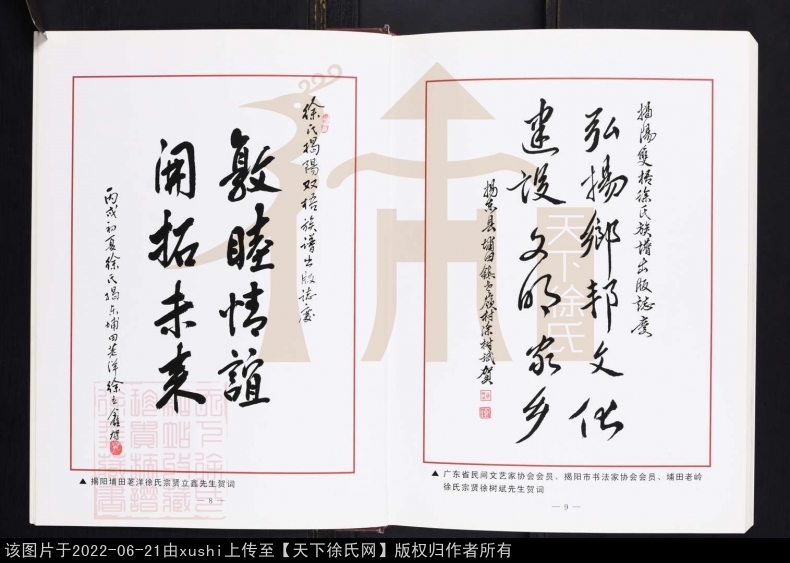 徐氏揭陽双梧族谱出版誌慶
敦睦情誼
開拓未来
丙戌初夏徐氏揭东埔田茖洋徐立鑫撰
▲ 揭阳埔田茖洋徐氏宗贤立鑫先生贺词
— 8 —
揭陽雙梧徐氏族譜出版誌慶
弘揚鄉邦文化
建設文明家乡
揭东县埔田镇老嶺村徐树斌贺
▲ 广东省民间文艺家协会会员、揭阳市书法家协会会员、埔田老岭
徐氏宗贤徐树斌先生贺词
— 9 —
天下徐氏
该图片于2022-06-21由xushi上传至【天下徐氏网】版权归作者所有